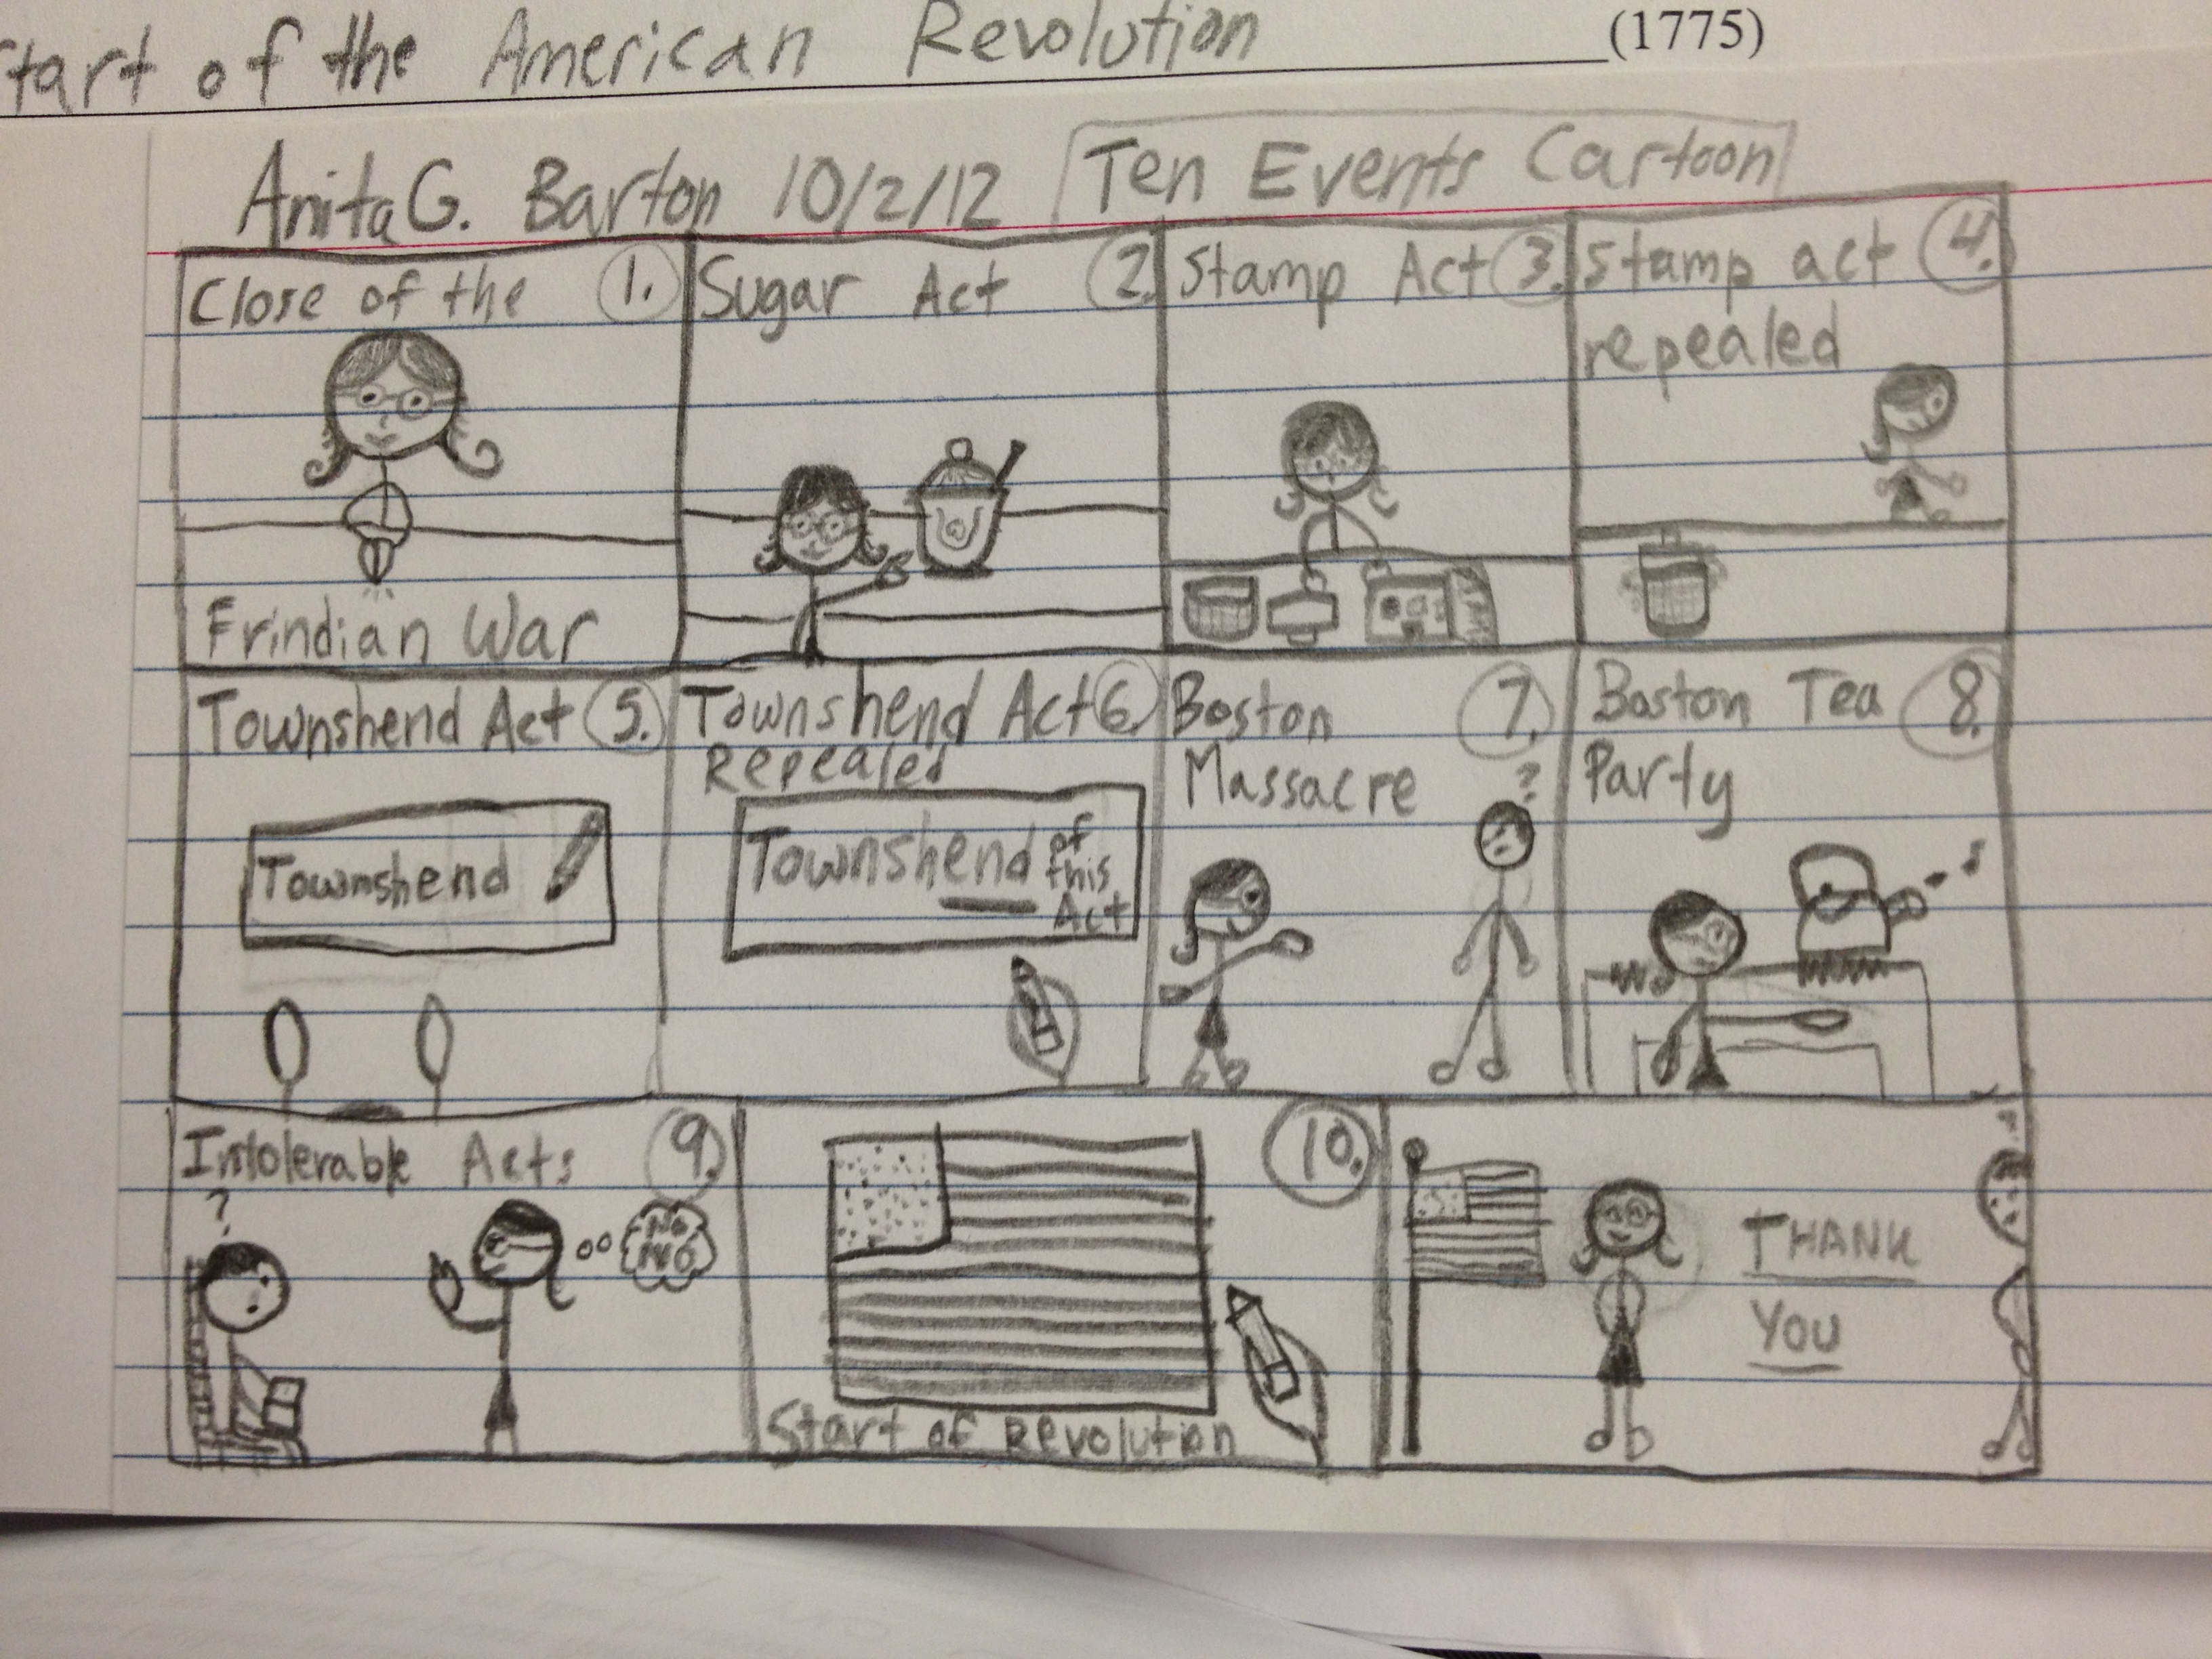 Start of the American Revolution (1775)
Anita G. Barton 10/2/12 Ten Events Cartoon
Close of the 1.
Frindian War
Sugar Act 2.
Stamp Act 3.
Stamp act 4.
repealed
Townshend Act 5.
Townshend
Townshend Act 6.
Repealed
Townshend of
this
Act
Boston 7.
Massacre
?
Boston Tea 8.
Party
Intolerable Acts 9.
?
No
No
10.
Start of Revolution
THANK
YOU